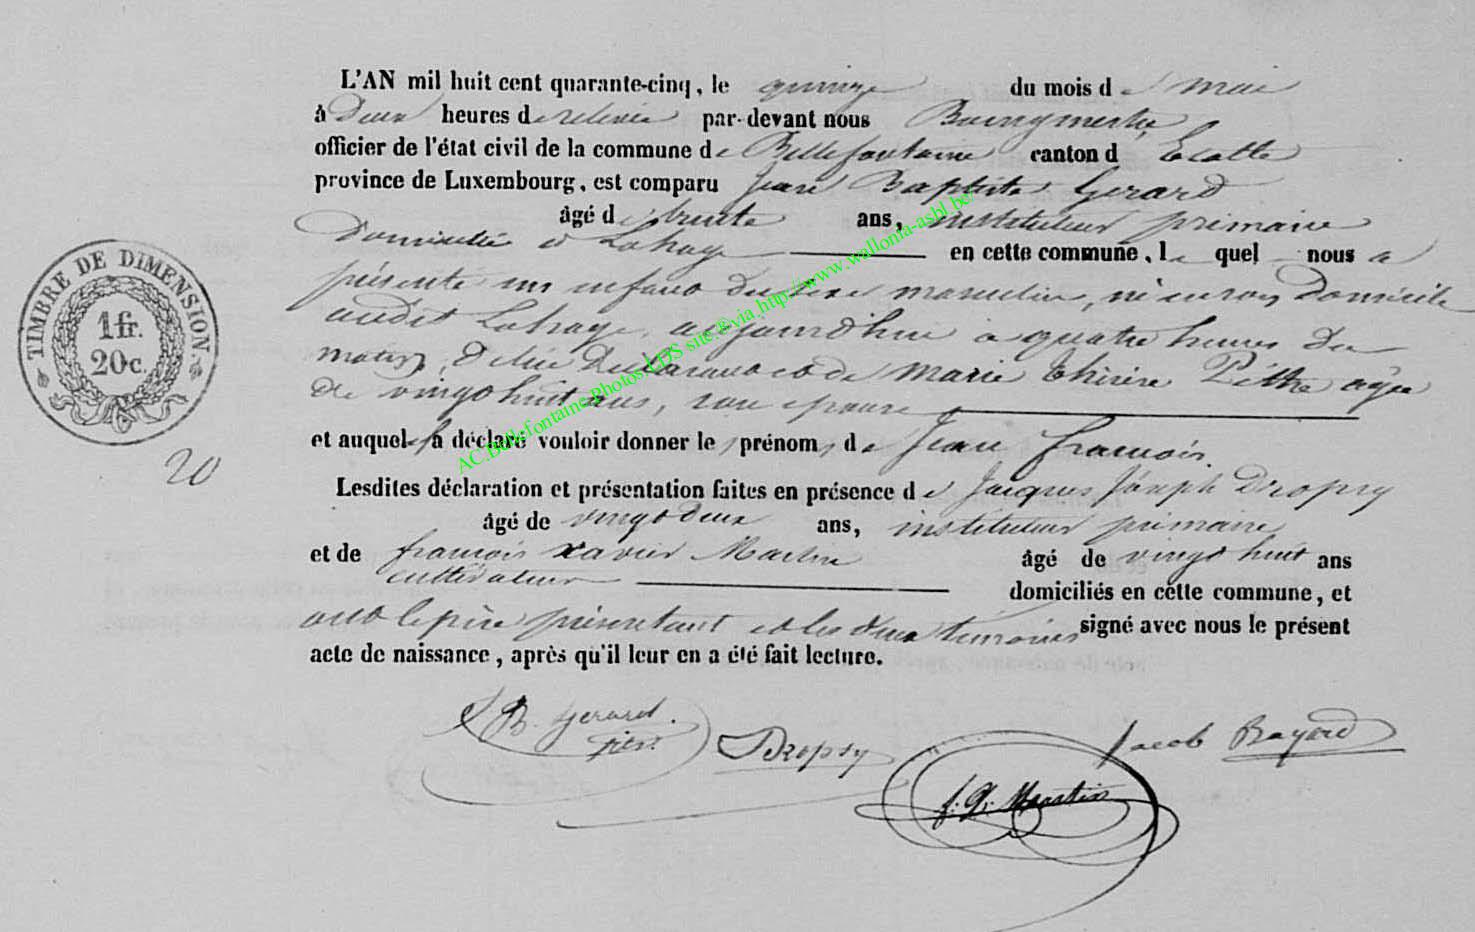 L'AN mil huit cent quarante-cinq, le quinze du mois de mai
à Deux heures de relevée par-devant nous Bourgmestre
officier de l'état civil de la commune de Bellefontaine canton d'Etalle
province de Luxembourg, est comparu Jean Baptiste Gerard
âgé de trente ans, instituteur primaire
Domicilié à Lahage en cette commune, lequel nous a
présenté un enfant du sexe masculin, né en son Domicile
audit Lahage, aujourd'hui à quatre heures du
matin, de lui Déclarant et de marie thérèse Pethe agée
de vingt huit ans, son épouse
et auquel il a déclaré vouloir donner les prénoms de Jean françois.
Lesdites déclaration et présentation faites en présence de Jacques Joseph Dropsy
âgé de vingt deux ans, instituteur primaire
et de françois xavier Martin âgé de vingt huit ans
cultivateur domiciliés en cette commune, et
ont le père présentant et les deux témoins signé avec nous le présent
acte de naissance, après qu'il leur en a été fait lecture.
TIMBRE DE DIMENSION.
1 fr.
20 c.
20
J B. Gerard.
Dropsy
f. X. Martin
Jacob Bayard
AC.Bellefontaine.Photos.LDS site.©via.http://www.wallonia-asbl.be/